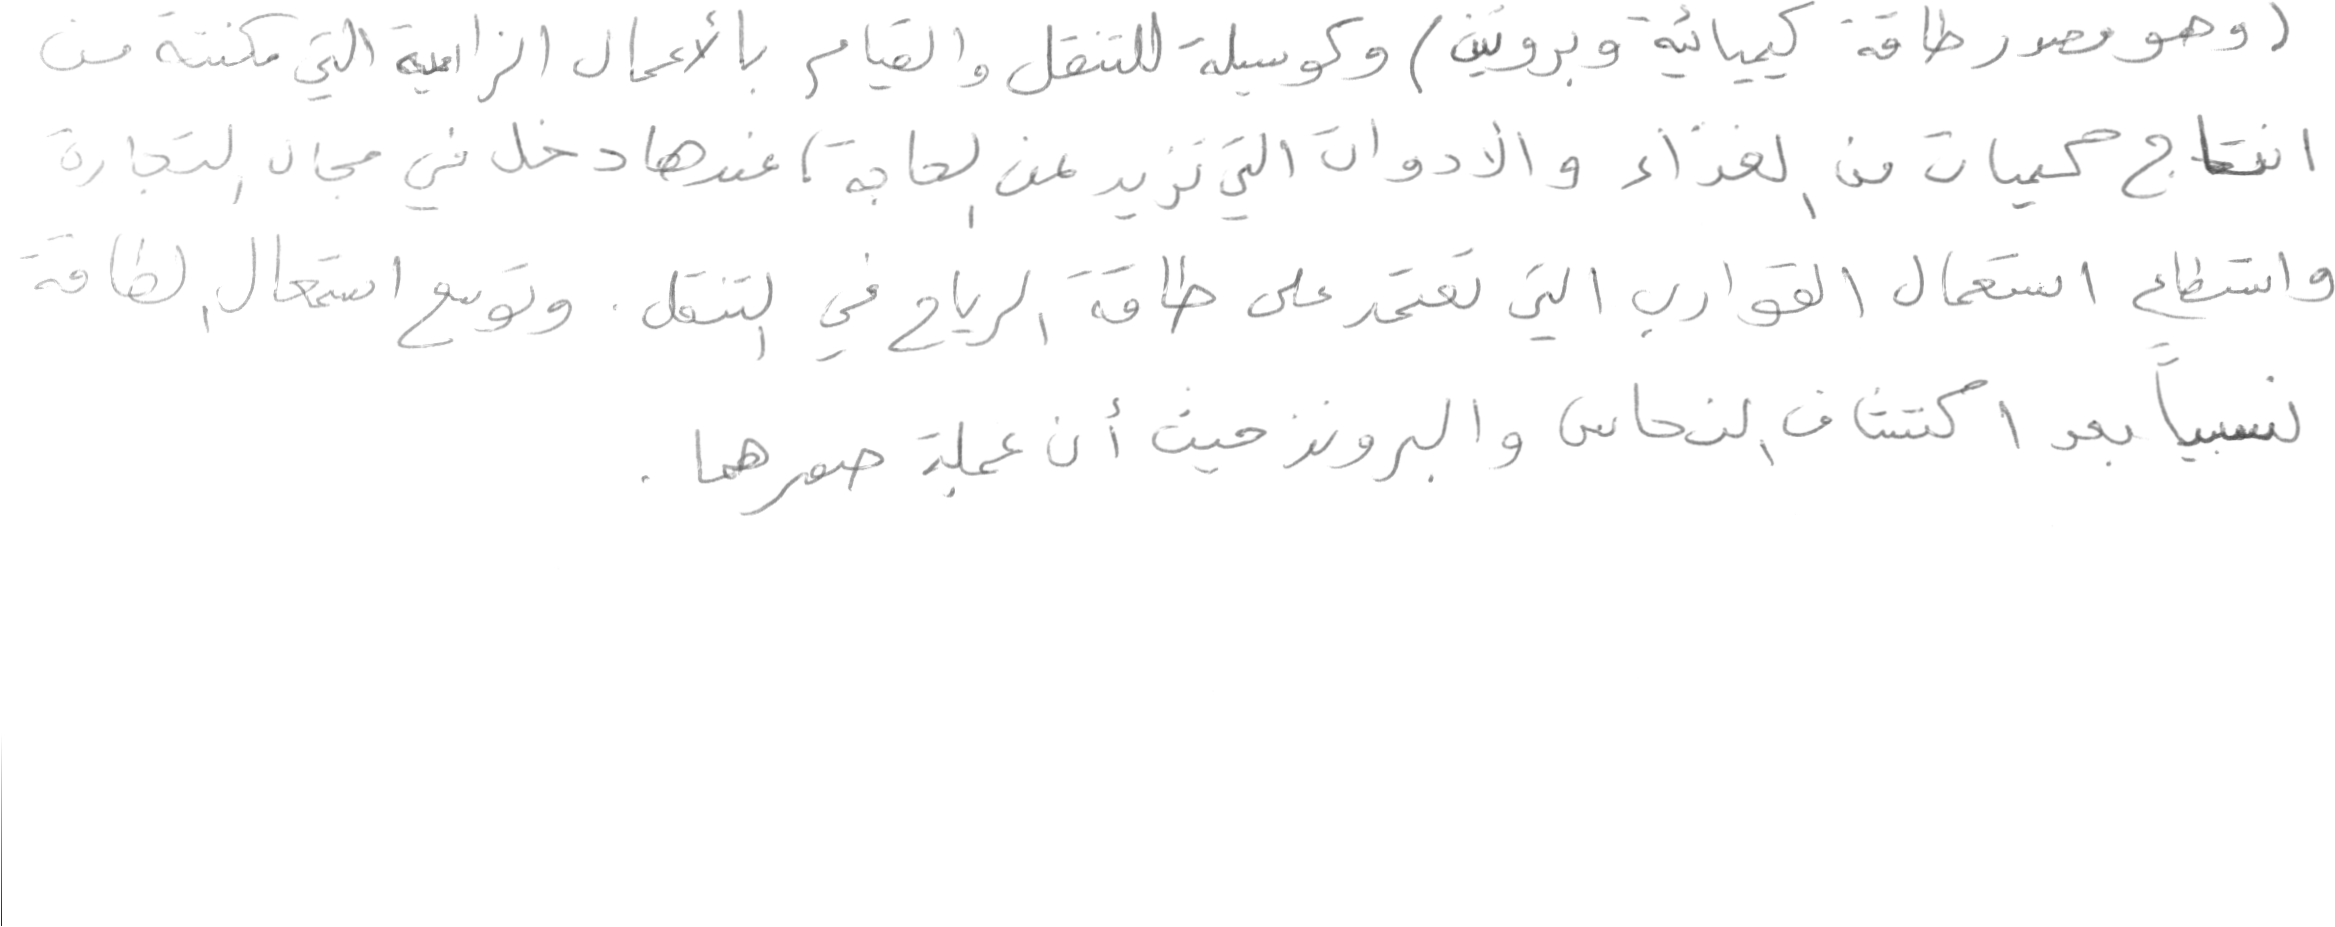 (وهو مصدر طاقة كيميائية وبروتين) وكوسيلة للتنقل والقيام بالأعمال الزراعية التي مكنته من
انتاج كميات من الغذاء والأدوات التي تزيد عن الحاجة، عندها دخل في مجال التجارة
واستطاع استعمال القوارب التي تعتمد على طاقة الرياح في التنقل. وتوسع استعمال الطاقة
نسبياً بعد اكتشاف النحاس والبرونز حيث أن عملية صهرهما.